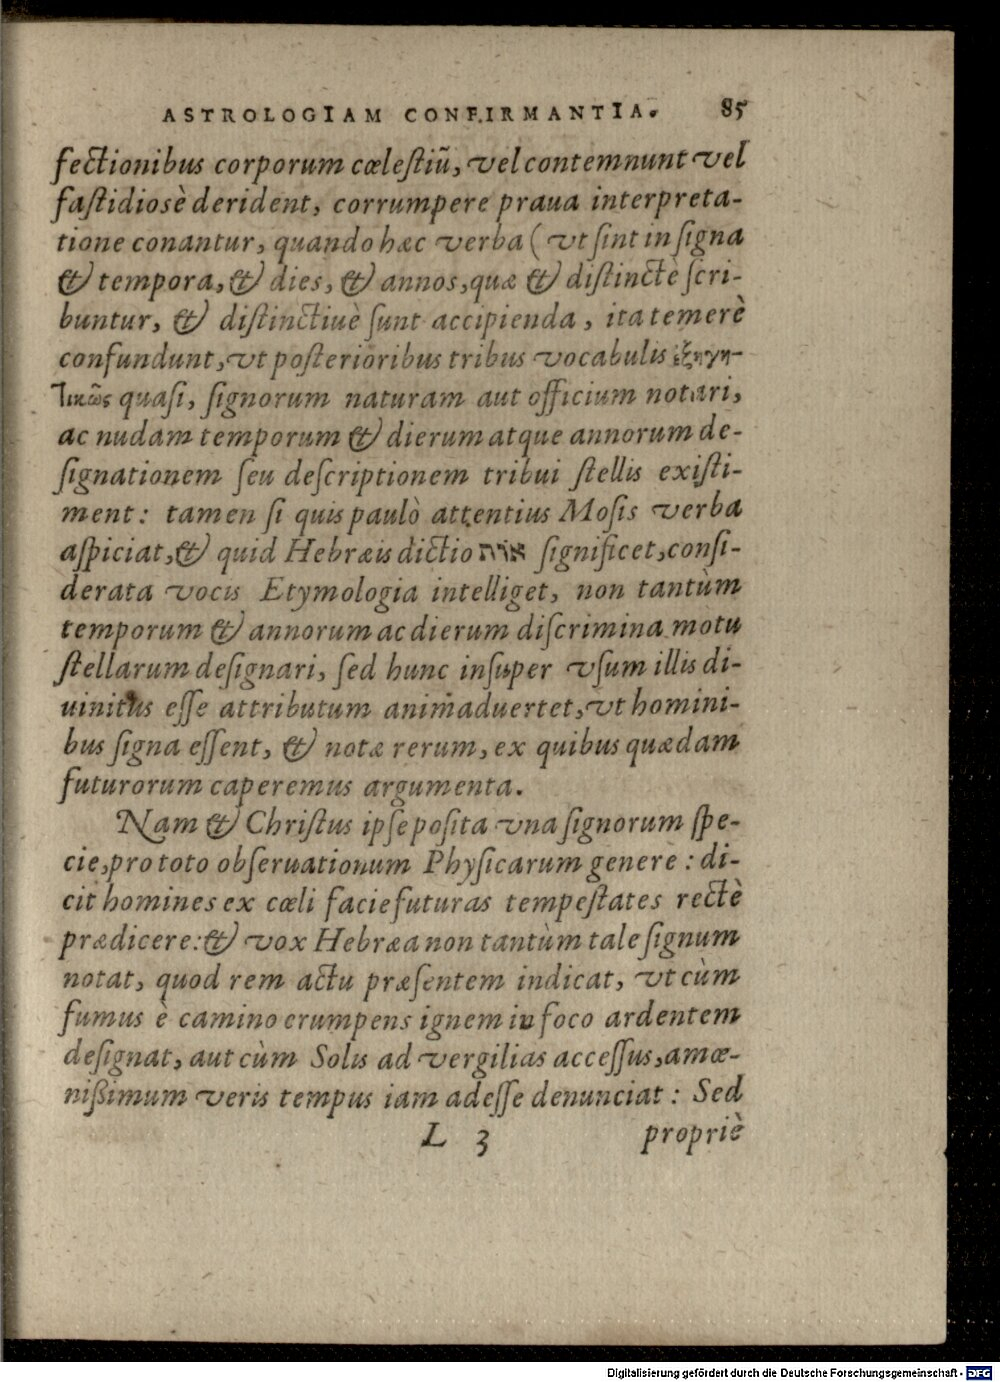 ASTROLOGIAM CONFIRMANTIA. 85
fectionibus corporum cœleſtiũ, vel contemnunt vel
faſtidiosè derident, corrumpere praua interpreta-
tione conantur, quando hæc verba ( vt ſint in ſigna
& tempora, & dies, & annos, quæ & diſtinctè ſcri-
buntur, & diſtinctiuè ſunt accipienda, ita temerè
confundunt, vt poſterioribus tribus vocabulis ἐξηγη-
τικῶς quaſi, ſignorum naturam aut officium notari,
ac nudam temporum & dierum atque annorum de-
ſignationem ſeu deſcriptionem tribui ſtellis exiſti-
ment: tamen ſi quis paulò attentius Moſis verba
aſpiciat, & quid Hebræis dictio אורה ſignificet, conſi-
derata vocis Etymologia intelliget, non tantùm
temporum & annorum ac dierum diſcrimina motu
ſtellarum deſignari, ſed hunc inſuper vſum illis di-
uinitus eſſe attributum animaduertet, vt homini-
bus ſigna eſſent, & notæ rerum, ex quibus quædam
futurorum caperemus argumenta.
Nam & Chriſtus ipſe poſita vna ſignorum ſpe-
cie, pro toto obſeruationum Phyſicarum genere : di-
cit homines ex cœli facie futuras tempeſtates rectè
prædicere: & vox Hebræa non tantùm tale ſignum
notat, quod rem actu præſentem indicat, vt cùm
fumus è camino erumpens ignem in foco ardentem
deſignat, aut cùm Solis ad vergilias acceſſus, amœ-
nißimum veris tempus iam adeſſe denunciat : Sed
L 3 propriè
Digitalisierung gefördert durch die Deutsche Forschungsgemeinschaft - DFG